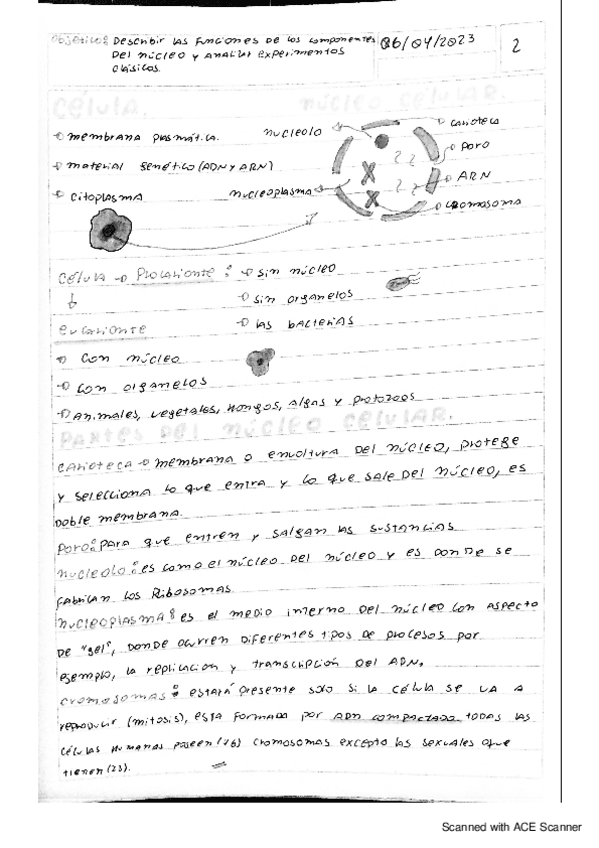 Objetivo: Describir las funciones de los componentes
Del núcleo y analizar experimentos
clásicos.
06/04/2023
2
célula.
núcleo celular.
membrana plasmática.
material genético (ADN y ARN)
citoplasma
nucleolo
nucleoplasma
carioteca
poro
ARN
cromosoma
célula → Procarionte: → sin núcleo
→ sin organelos
→ las bacterias
eucarionte
→ con núcleo
→ con organelos
→ Animales, vegetales, hongos, algas y protozoos
partes del núcleo celular.
carioteca → membrana o envoltura del núcleo, protege
y selecciona lo que entra y lo que sale del núcleo, es
doble membrana.
Poro: para que entren y salgan las sustancias
nucleolo: es como el núcleo del núcleo y es donde se
fabrican los ribosomas
nucleoplasma: es el medio interno del núcleo con aspecto
de "gel", donde ocurren diferentes tipos de procesos por
ejemplo, la replicación y transcripción del ADN.
cromosomas: estará presente solo si la célula se va a
reproducir (mitosis), esta formada por ADN compactado todas las
células humanas poseen (46) cromosomas excepto las sexuales que
tienen (23).
Scanned with ACE Scanner